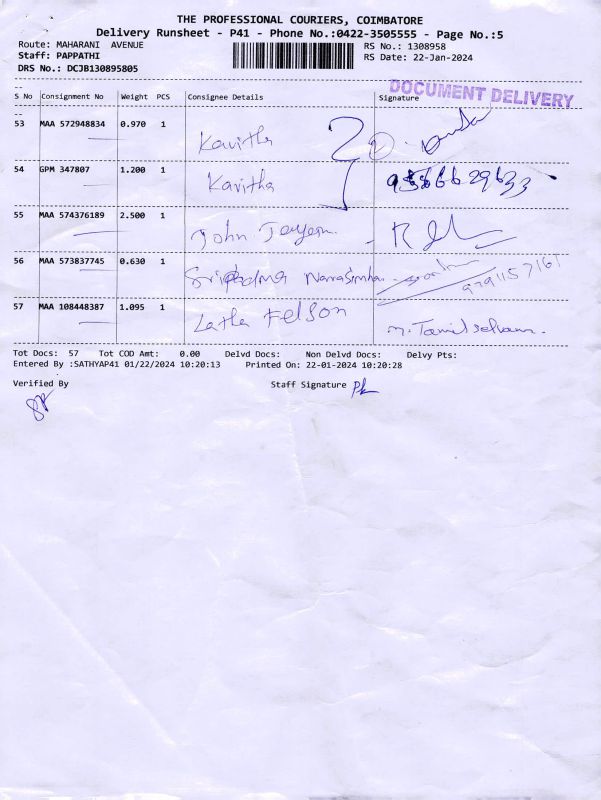 THE PROFESSIONAL COURIERS, COIMBATORE
Delivery Runsheet - P41 - Phone No.:0422-3505555 - Page No.:5
Route: MAHARANI AVENUE
RS No.: 1308958
Staff: PAPPATHI
RS Date: 22-Jan-2024
DRS No.: DCJB130895805
DOCUMENT DELIVERY
S No Consignment No Weight PCS Consignee Details Signature
53 MAA 572948834 0.970 1 Kavitha
54 GPM 347807 1.200 1 Kavitha
55 MAA 574376189 2.500 1 John
56 MAA 573837745 0.630 1 Narasimha 9791157161
57 MAA 108448387 1.095 1 Latha Felson M. Tamilselvam.
Tot Docs: 57 Tot COD Amt: 0.00 Delvd Docs: Non Delvd Docs: Delvy Pts:
Entered By :SATHYAP41 01/22/2024 10:20:13 Printed On: 22-01-2024 10:20:28
Verified By Staff Signature